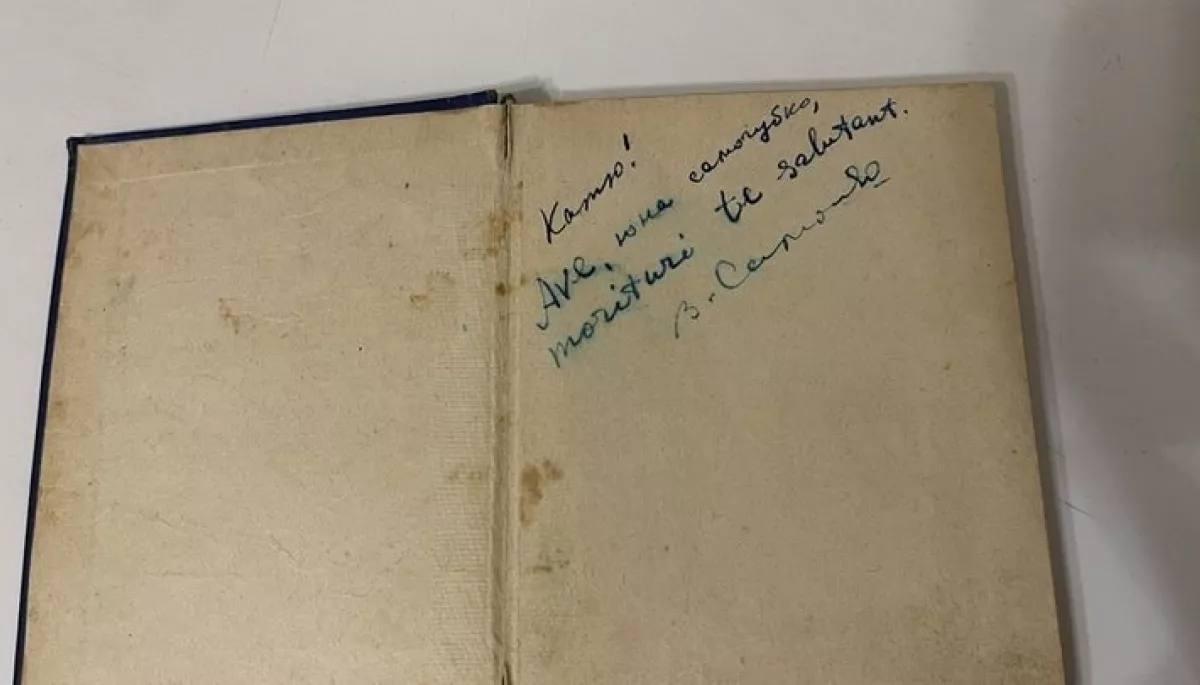 Катю!
Ave, юна самогубко,
morituri te salutant.
В. Самойло